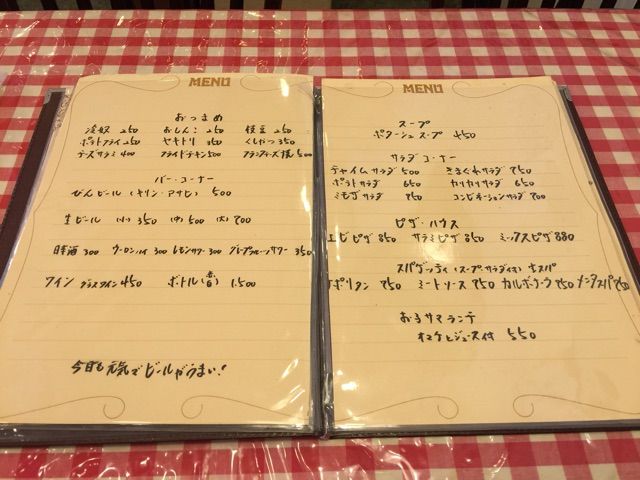 MENU
おつまめ
冷奴 250 おしんこ 250 枝豆 250
ポテトフライ 250 ヤキトリ 350 くしかつ 350
チーズサラミ 400 フライドチキン 500 500
バー・コーナー
びんビール (キリン・アサヒ) 500
生ビール (小) 350 (中) 500 (大) 700
日本酒 300 ウーロンハイ 300 レモンサワー 300 グレープフルーツサワー 350
ワイン グラスワイン 450 ボトル(赤白) 1.500
今日も元気でビールがうまい!
MENU
スープ
ポタージュスープ 450
サラダコーナー
チャイムサラダ 500 きまぐれサラダ 750
ポテトサラダ 650 カリカリサラダ 650
ミモザサラダ 750 コンビネーションサラダ 700
ピザ・ハウス
エビピザ 850 サラミピザ 850 ミックスピザ 880
スパゲッティ (スープサラダ付)
ナポリタン 750 ミートソース 750 カルボナーラ 750 メンタスパ 750
お子サマランチ
オマケとジュース付 550